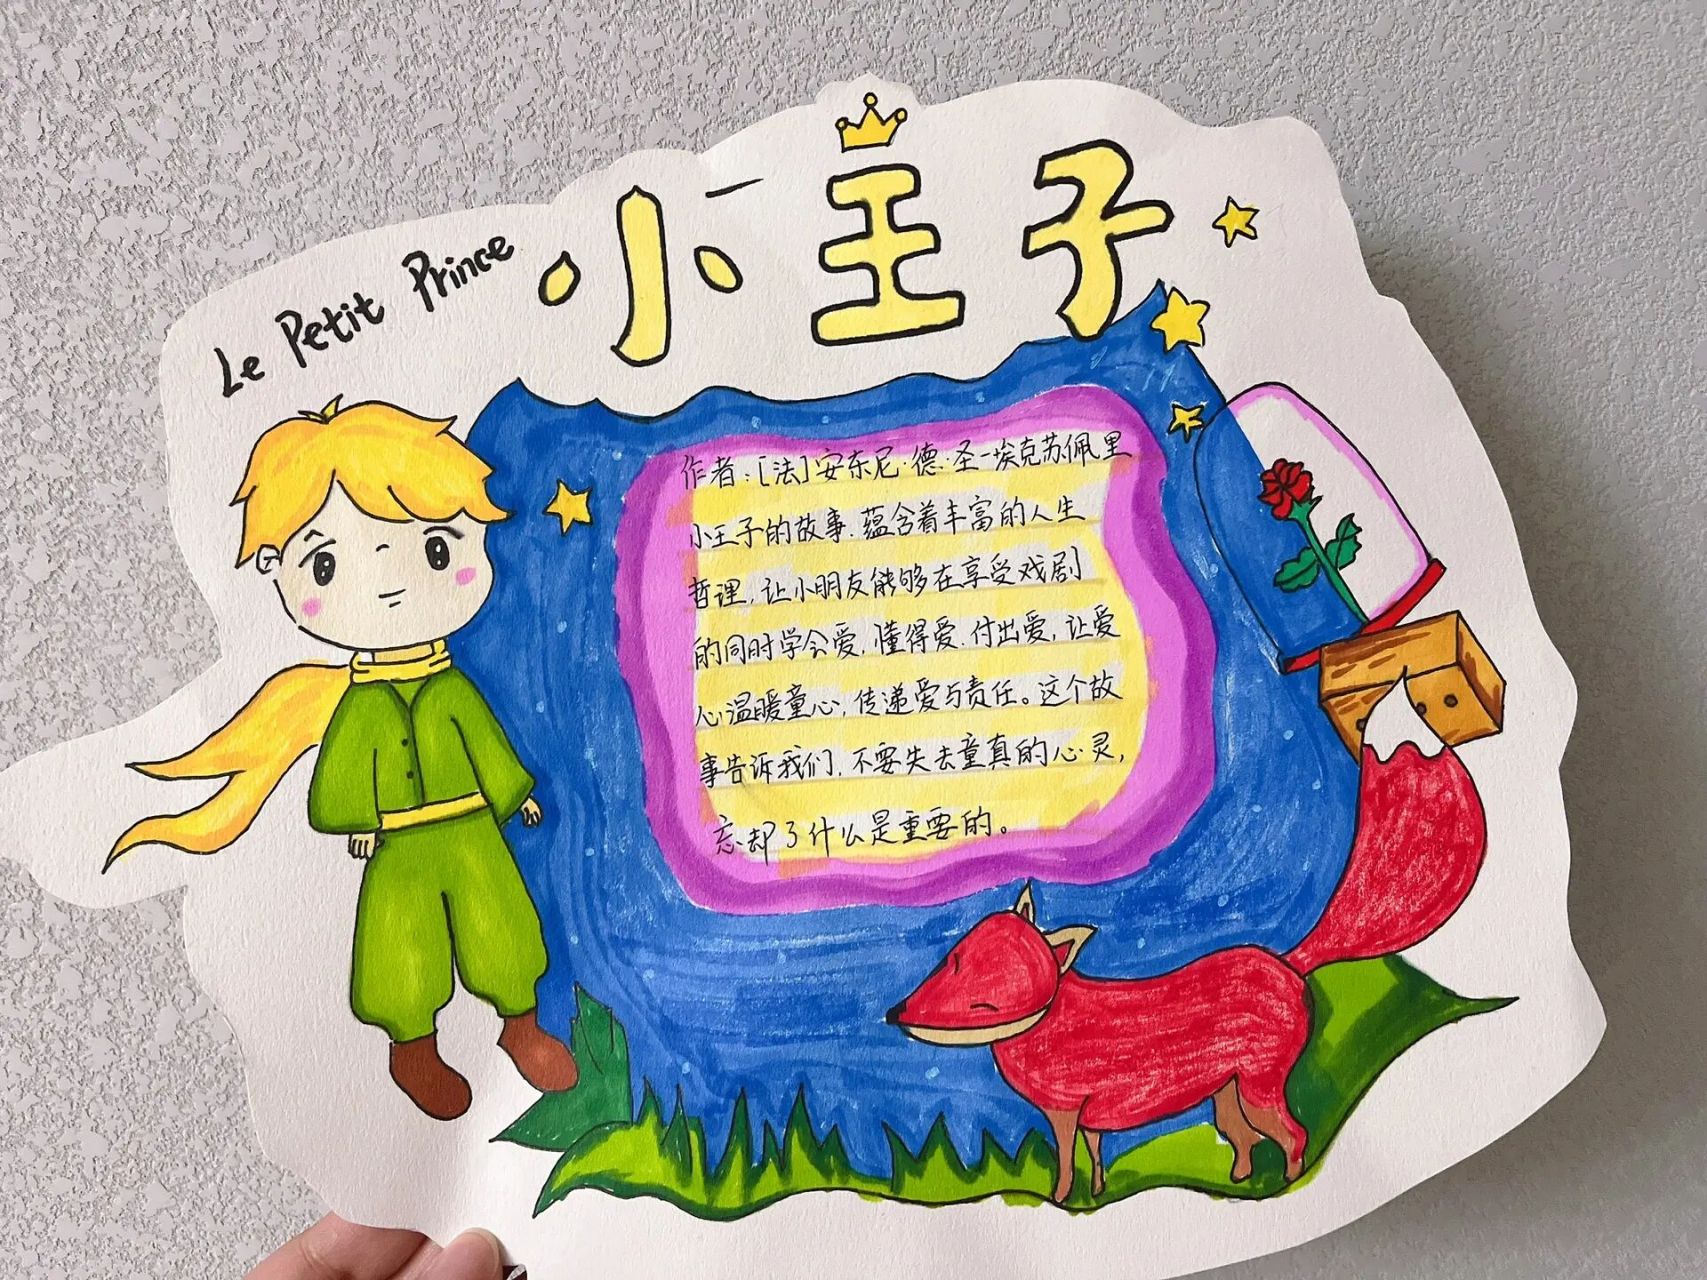 Le Petit Prince
小王子
作者:[法]安东尼·德·圣-埃克苏佩里
小王子的故事.蕴含着丰富的人生
哲理,让小朋友能够在享受戏剧
的同时学会爱,懂得爱.付出爱,让爱
心温暖童心,传递爱与责任。这个故
事告诉我们,不要失去童真的心灵,
忘却了什么是重要的。